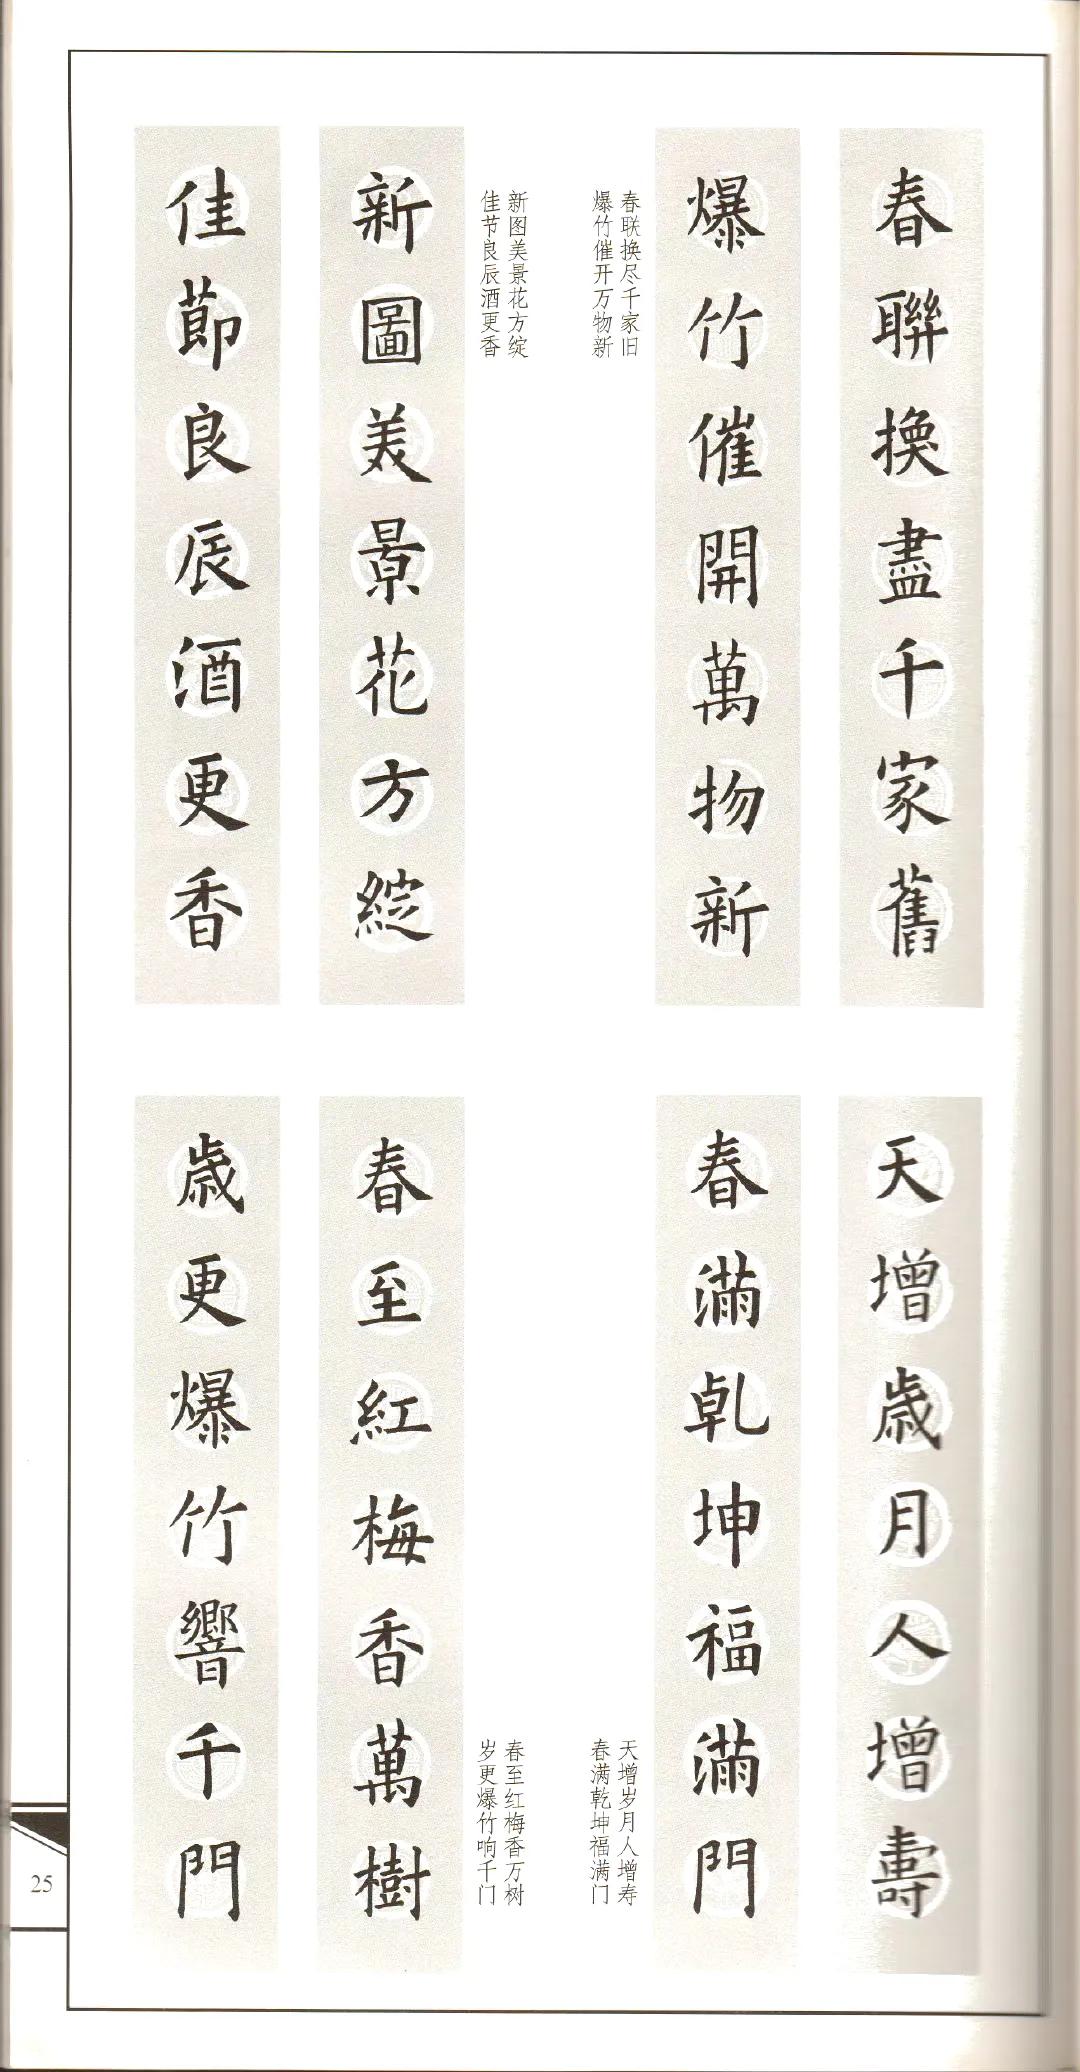 春聯換盡千家舊
爆竹催開萬物新
春联换尽千家旧
爆竹催开万物新
新图美景花方绽
佳节良辰酒更香
新圖美景花方綻
佳節良辰酒更香
天增歲月人增壽
春滿乾坤福滿門
天增岁月人增寿
春满乾坤福满门
春至红梅香万树
岁更爆竹响千门
春至紅梅香萬樹
歲更爆竹響千門
25